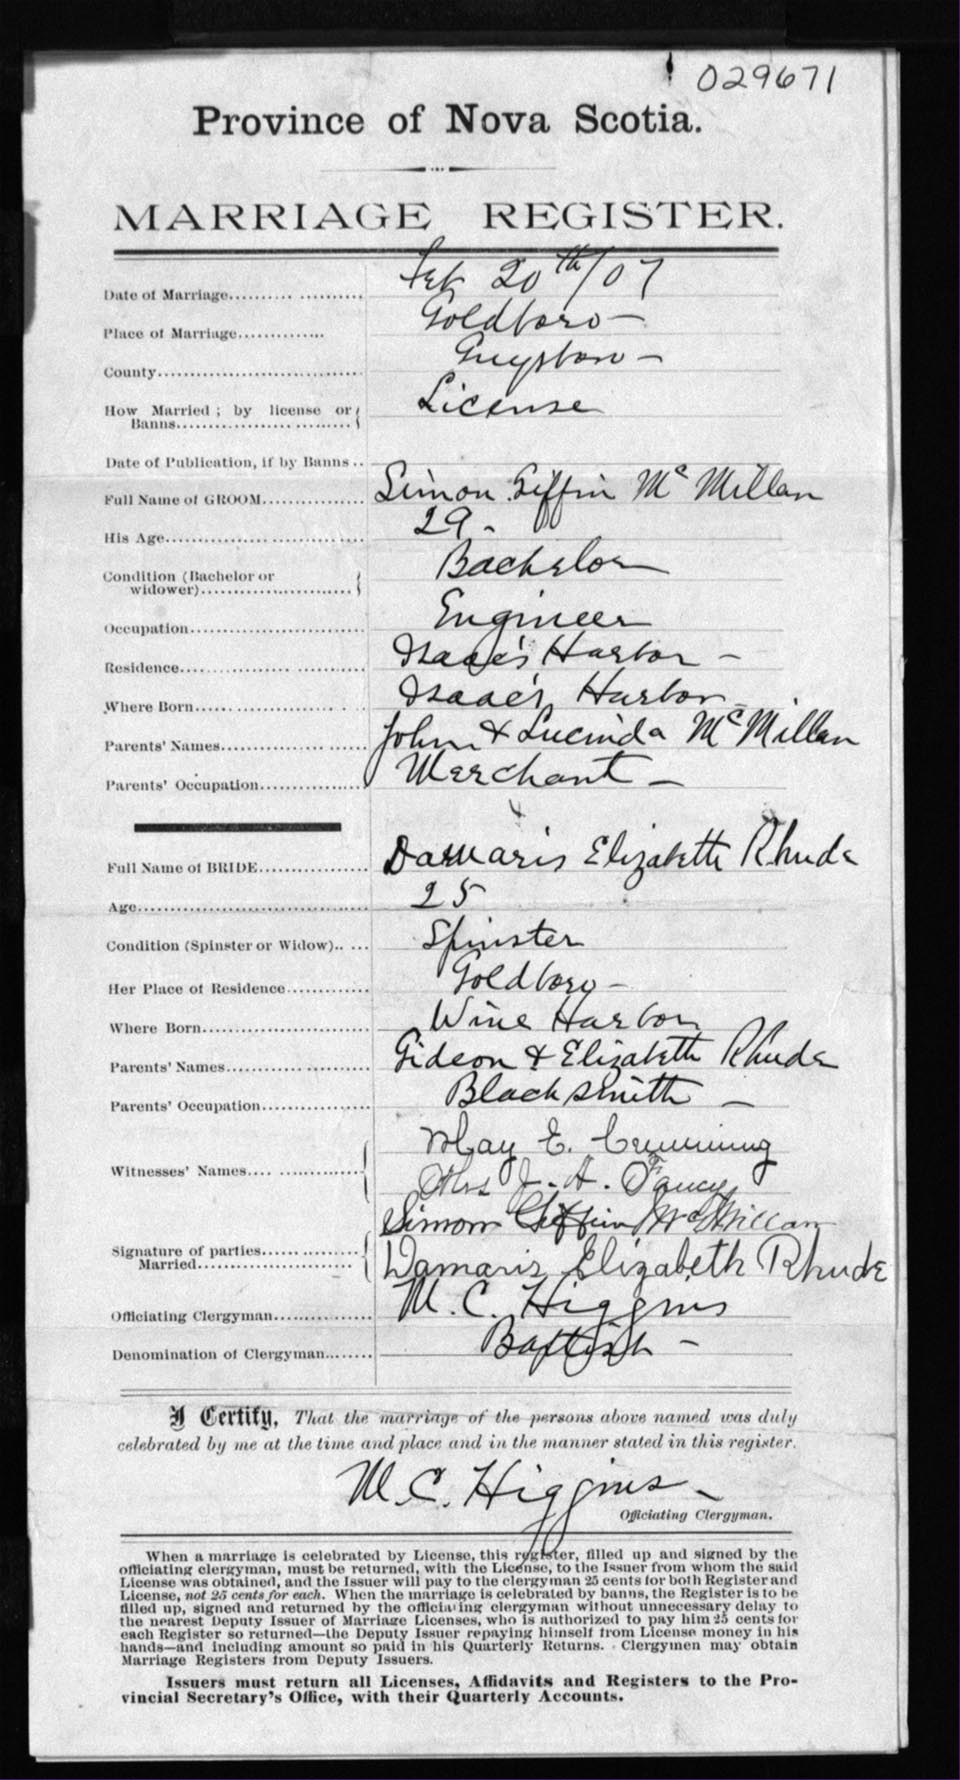 029671
Province of Nova Scotia.
MARRIAGE REGISTER.
Date of Marriage.......... .......... Feb 20th/07
Place of Marriage............. Goldboro –
County.............................. Guysboro –
How Married ; by license or License
Banns.............................
Date of Publication, if by Banns ..
Full Name of GROOM............... Simon Giffin Mc Millan
His Age............................. 29 -
Condition (Bachelor or Bachelor
widower)........................
Occupation......................... Engineer
Residence.......................... Isaac's Harbor –
Where Born......................... Isaac's Harbor
Parents' Names..................... John & Lucinda Mc Millan
Parents' Occupation................ Merchant –
Full Name of BRIDE................. Damaris Elizabeth Rhude
Age................................. 25
Condition (Spinster or Widow).. .... Spinster
Her Place of Residence............. Goldboro –
Where Born......................... Wine Harbor
Parents' Names..................... Gideon & Elizabeth Rhude
Parents' Occupation................ Blacksmith –
May E. Cumming
Witnesses' Names.... ..............
Mrs J. A. Fancy
Simon Giffin McMillan
Signature of parties..............
Married........................ Damaris Elizabeth Rhude
Officiating Clergyman.............. M. C. Higgins
Denomination of Clergyman....... Baptist –
I Certify, That the marriage of the persons above named was duly
celebrated by me at the time and place and in the manner stated in this register.
M. C. Higgins –
Officiating Clergyman.
When a marriage is celebrated by License, this register, filled up and signed by the
officiating clergyman, must be returned, with the License, to the Issuer from whom the said
License was obtained, and the Issuer will pay to the clergyman 25 cents for both Register and
License, not 25 cents for each. When the marriage is celebrated by banns, the Register is to be
filled up, signed and returned by the officiating clergyman without unnecessary delay to
the nearest Deputy Issuer of Marriage Licenses, who is authorized to pay him 25 cents for
each Register so returned—the Deputy Issuer repaying himself from License money in his
hands—and including amount so paid in his Quarterly Returns. Clergymen may obtain
Marriage Registers from Deputy Issuers.
Issuers must return all Licenses, Affidavits and Registers to the Pro-
vincial Secretary's Office, with their Quarterly Accounts.